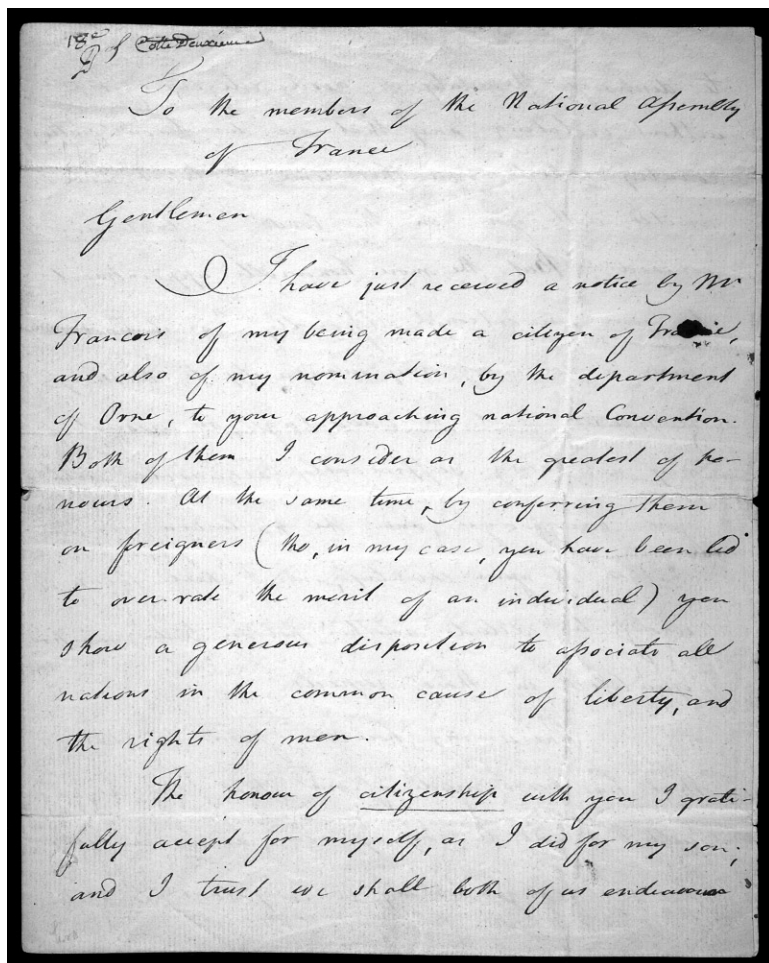 18e
Cotte Deuxieme
To the members of the National Assembly
of France
Gentlemen
I have just received a notice by Mr
Francois of my being made a citizen of France,
and also of my nomination, by the department
of Orne, to your approaching national Convention.
Both of them I consider as the greatest of ho-
nours. At the same time, by conferring them
on foreigners (tho, in my case, you have been led
to over-rate the merit of an individual) you
show a generous disposition to associate all
nations in the common cause of liberty, and
the rights of men.
The honour of citizenship with you I grate-
fully accept for myself, as I did for my son;
and I trust we shall both of us endeavour